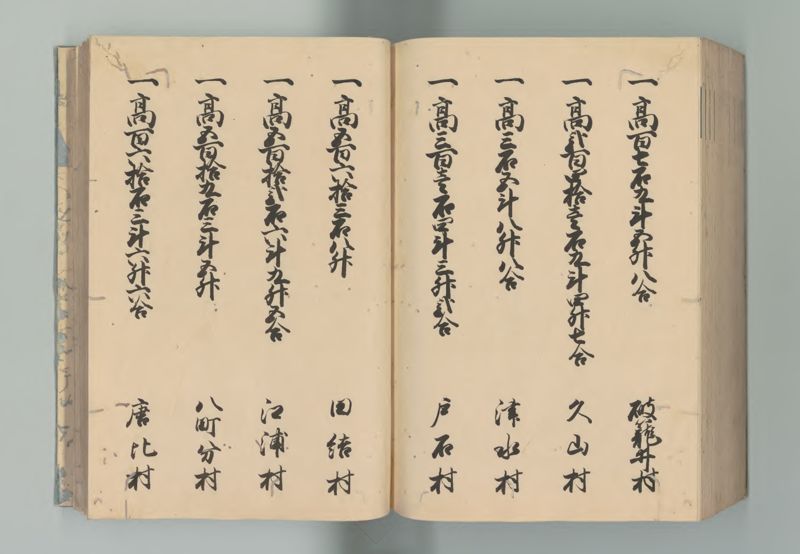 一高百七石九斗五升八合 破籠井村
一高弐百四拾壱石九斗四升七合 久山村
一高三石五斗八升八合 津水村
一高三百壱石四斗三升弐合 戸石村
一高五百六拾三石八升 田結村
一高五百拾弐石六斗九升五合 江浦村
一高五百拾九石三斗五升 八町分村
一高百六拾石三斗六升六合 唐比村